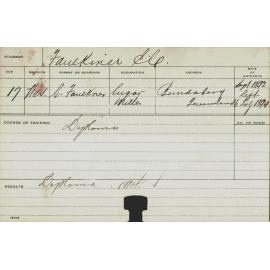 STUDENT Faulkiner
AGE RELIGION PARENT OR GUARDIAN OCCUPATION ADDRESS DATE OF ENTRANCE
17 C. Faulkner Sugar Miller Bundaberg Queensland Sept. 1892
July 1894
COURSE OF TRAINING
Diploma
RESULTS Diploma 1894